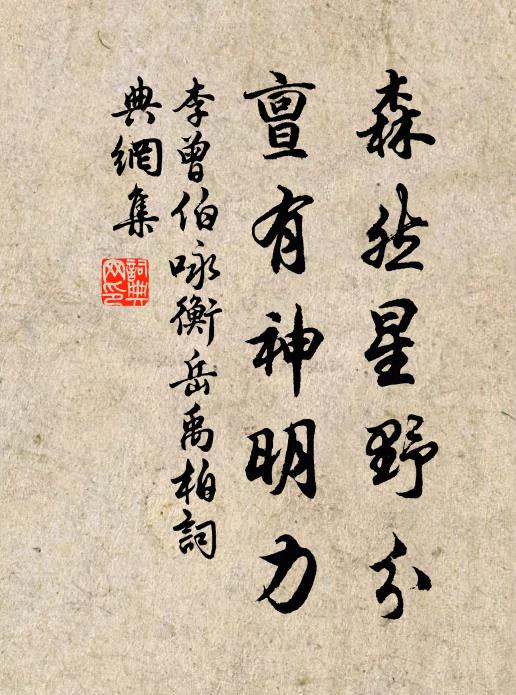 森然星野分
亶有神明力
李曾伯咏衡岳禹柏詞
典網集
詞典
网印